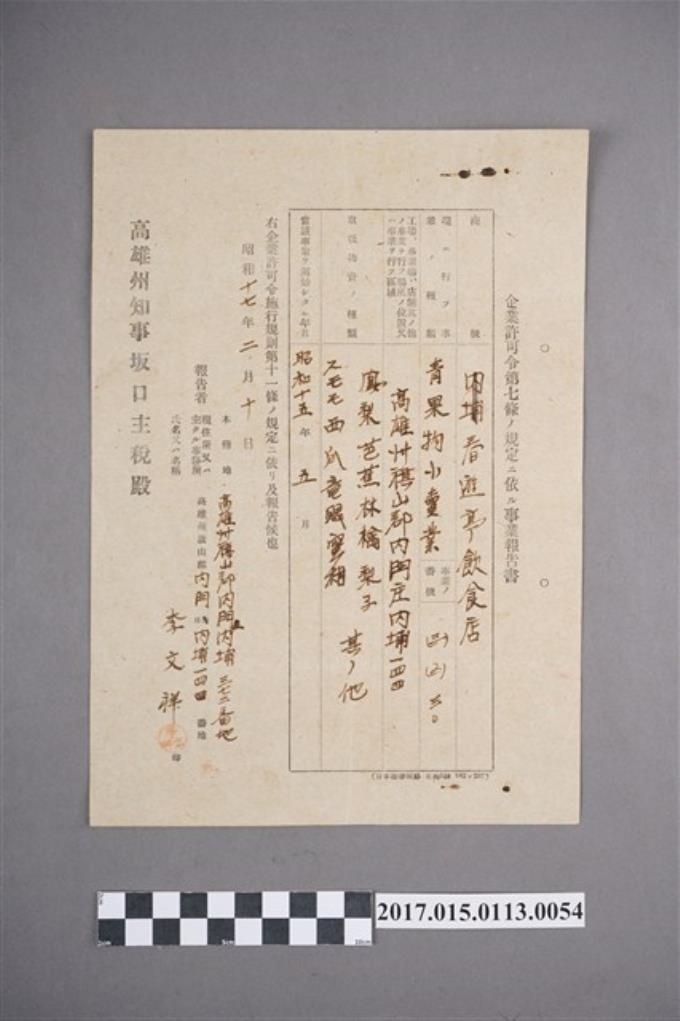 企業許可令第七條ノ規定ニ依ル事業報告書
商號
內埔春遊亭飲食店
現ニ行フ事業ノ種類
青果物小賣業
事業ノ番號
工場、事業場、店舖其ノ他ノ事業ヲ行フ場所ノ位置又ハ事業ヲ行フ區域
高雄州旗山郡內門庄內埔一四四
取扱物資ノ種類
鳳梨芭蕉林檎梨子其ノ他
スモモ西瓜竜眼蜜柑
當該事業ヲ開始シタル年月
昭和十五年五月
右企業許可令施行規則第十一條ノ規定ニ依リ及報告候也
昭和十七年二月十日
本籍地
高雄州旗山郡內門庄內埔三七二番地
報告者
現住所又ハ主タル事務所
高雄州旗山郡內門庄內埔一四四番地
氏名又ハ名稱
李文祥
印
高雄州知事坂口主稅殿
2017.015.0113.0054